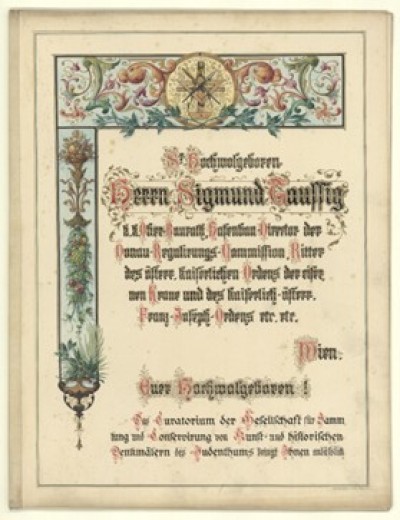 Sr Hochwolgeboren
Herrn Sigmund Taussig
k. k. Ober-Baurath, Hafenbau-Director der
Donau-Regulirungs-Commission, Ritter
des österr. kaiserlichen Ordens der eiser
nen Krone und des kaiserlich-österr.
Franz-Joseph-Ordens etc. etc.
Wien.
Euer Hochwolgeboren !
Das Curatorium der Gesellschaft für Samm
lung und Conservirung von Kunst- und historischen
Denkmälern des Judenthums bringt Ihnen anläßlich